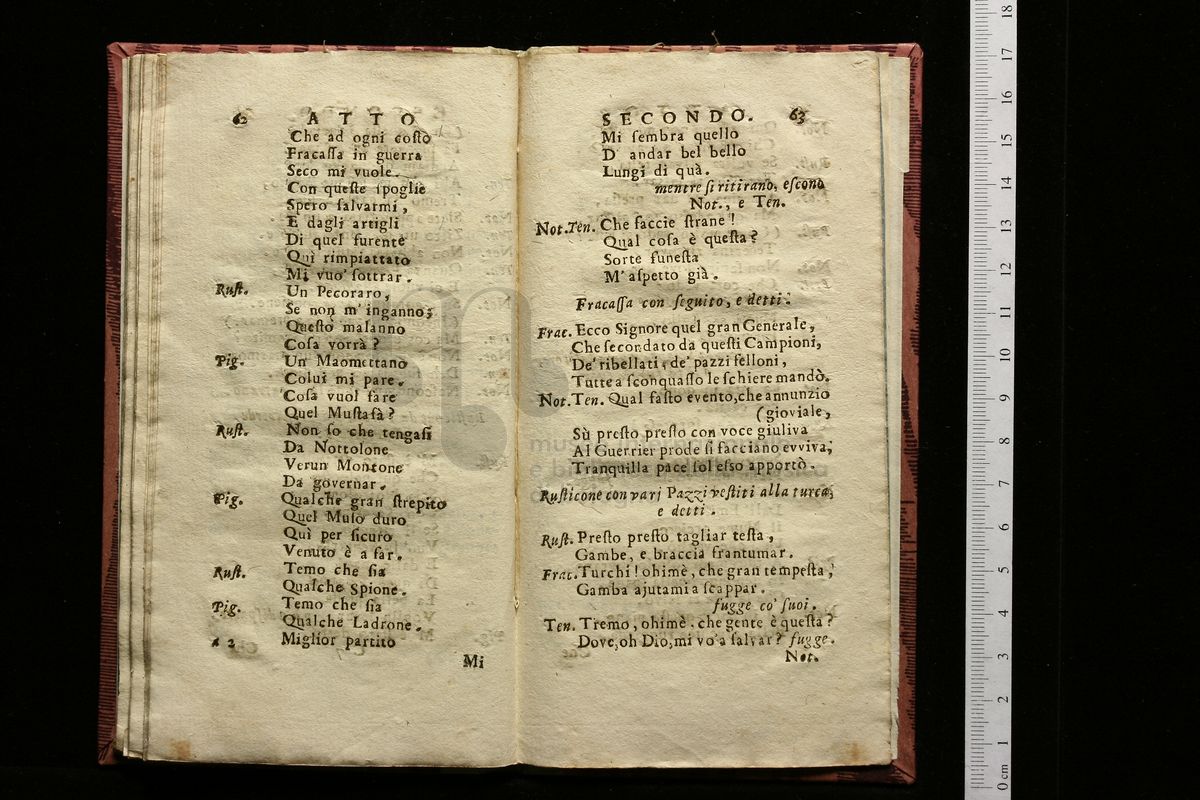 62 ATTO
Che ad ogni coſto
Fracaſſa in guerra
Seco mi vuole.
Con queſte ſpoglie
Spero ſalvarmi,
E dagli artigli
Di quel furente
Quì rimpiattato
Mi vuo' ſottrar.
Ruſt. Un Pecoraro,
Se non m'inganno;
Queſto malanno
Coſa vorrà?
Pig. Un Maomettano
Colui mi pare.
Coſa vuol fare
Quel Muſtafà?
Ruſt. Non ſo che tengaſi
Da Nottolone
Verun Montone
Da governar.
Pig. Qualche gran ſtrepito
Quel Muſo duro
Quì per ſicuro
Venuto è a far.
Ruſt. Temo che ſia
Qualche Spione.
Pig. Temo che ſia
Qualche Ladrone.
a 2 Miglior partito
Mi
SECONDO. 63
Mi ſembra quello
D' andar bel bello
Lungi di quà.
mentre ſi ritirano, eſcono
Not., e Ten.
Not.Ten. Che faccie ſtrane!
Qual coſa è queſta?
Sorte funeſta
M'aſpetto già.
Fracaſſa con ſeguito, e detti.
Frac. Ecco Signore quel gran Generale,
Che ſecondato da queſti Campioni,
De' ribellati, de' pazzi felloni,
Tutte a ſconquaſſo le ſchiere mandò.
Not.Ten. Qual faſto evento, che annunzio
(gioviale,
Sù preſto preſto con voce giuliva
Al Guerrier prode ſi facciano evviva;
Tranquilla pace ſol eſſo apportò.
Ruſticone con varj Pazzi veſtiti alla turca,
e detti.
Ruſt. Preſto preſto tagliar teſta,
Gambe, e braccia frantumar.
Frac. Turchi! ohimè, che gran tempeſta,
Gamba ajutami a ſcappar.
fugge co' ſuoi.
Ten. Tremo, ohimè, che gente è queſta?
Dove, oh Dio, mi vo a ſalvar? fugge.
Not.
0 cm 1 2 3 4 5 6 7 8 9 10 11 12 13 14 15 16 17 18